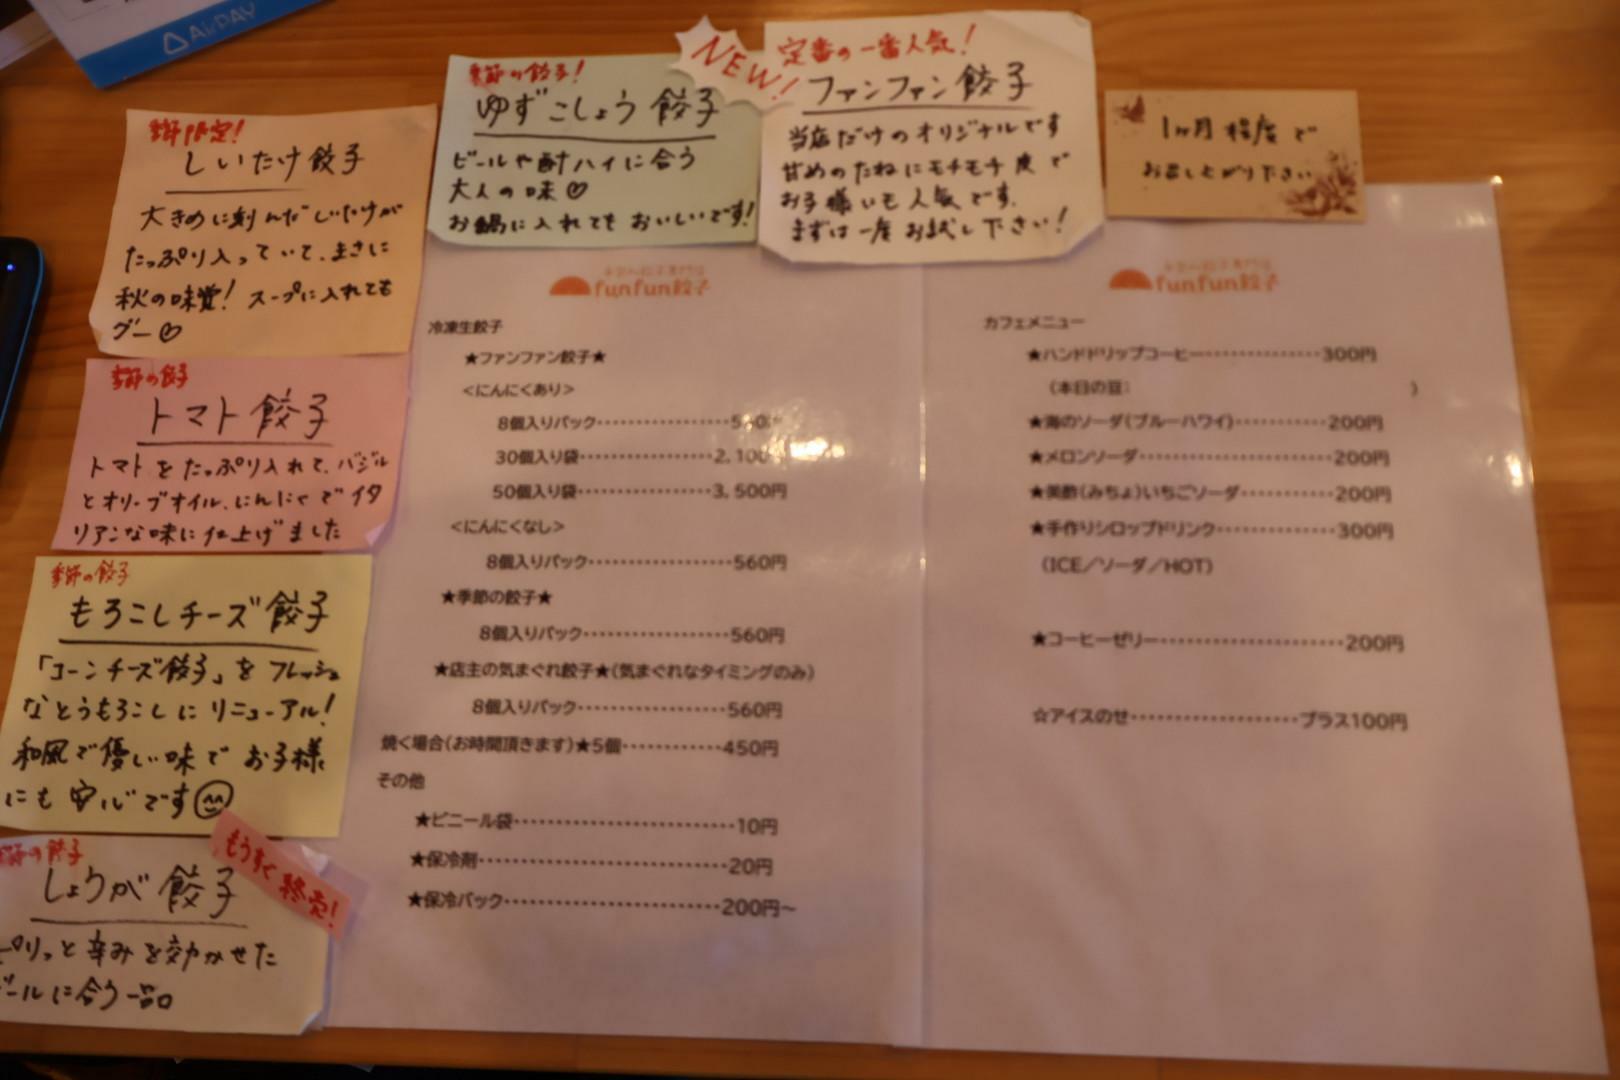 AirPAY
季節限定!
しいたけ餃子
大きめに刻んだしいたけが
たっぷり入っていて、まさに
秋の味覚! スープに入れても
グー♡
季節の餃子
トマト餃子
トマトをたっぷり入れて、バジル
とオリーブオイル、にんにくでイタ
リアンな味に仕上げました
季節の餃子
もろこしチーズ餃子
「コーンチーズ餃子」をフレッシュ
なとうもろこしにリニューアル!
和風で優しい味でお子様
にも安心です
季節の餃子
しょうが餃子
もうすぐ終売!
ピリっと辛みを効かせた
ビールに合う一品
季節の餃子!
ゆずこしょう餃子
ビールや酎ハイに合う
大人の味♡
お鍋に入れてもおいしいです!
NEW!
定番の一番人気!
ファンファン餃子
当店だけのオリジナルです
甘めのたねにモチモチ皮で
お子様にも人気です。
まずは一度お試し下さい!
1ヶ月程度で
お召し上がり下さい
funfun餃子
冷凍生餃子
★ファンファン餃子★
<にんにくあり>
8個入りパック
30個入り袋 2,100
50個入り袋 3,500円
<にんにくなし>
8個入りパック 560円
★季節の餃子★
8個入りパック 560円
★店主の気まぐれ餃子★(気まぐれなタイミングのみ)
8個入りパック 560円
焼く場合(お時間頂きます)★5個 450円
その他
★ビニール袋 10円
★保冷剤 20円
★保冷パック 200円~
funfun餃子
カフェメニュー
★ハンドドリップコーヒー 300円
(本日の豆: )
★海のソーダ(ブルーハワイ) 200円
★メロンソーダ 200円
★美酢(みちょ)いちごソーダ 200円
★手作りシロップドリンク 300円
(ICE/ソーダ/HOT)
★コーヒーゼリー 200円
☆アイスのせ プラス100円